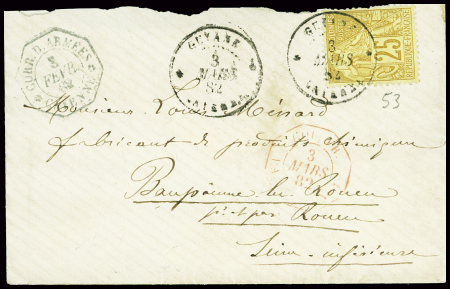 CORR. D. ARMÉES
3
FEVR
82
GUYANE
3
MARS
82
CAYENNE
GUYANE
3
MARS
82
CAYENNE
25
53
Monsieur Louis Ménard
fabricant de produits chimique
3
MARS
82
lez Rouen
près par Rouen
Seine-inférieure